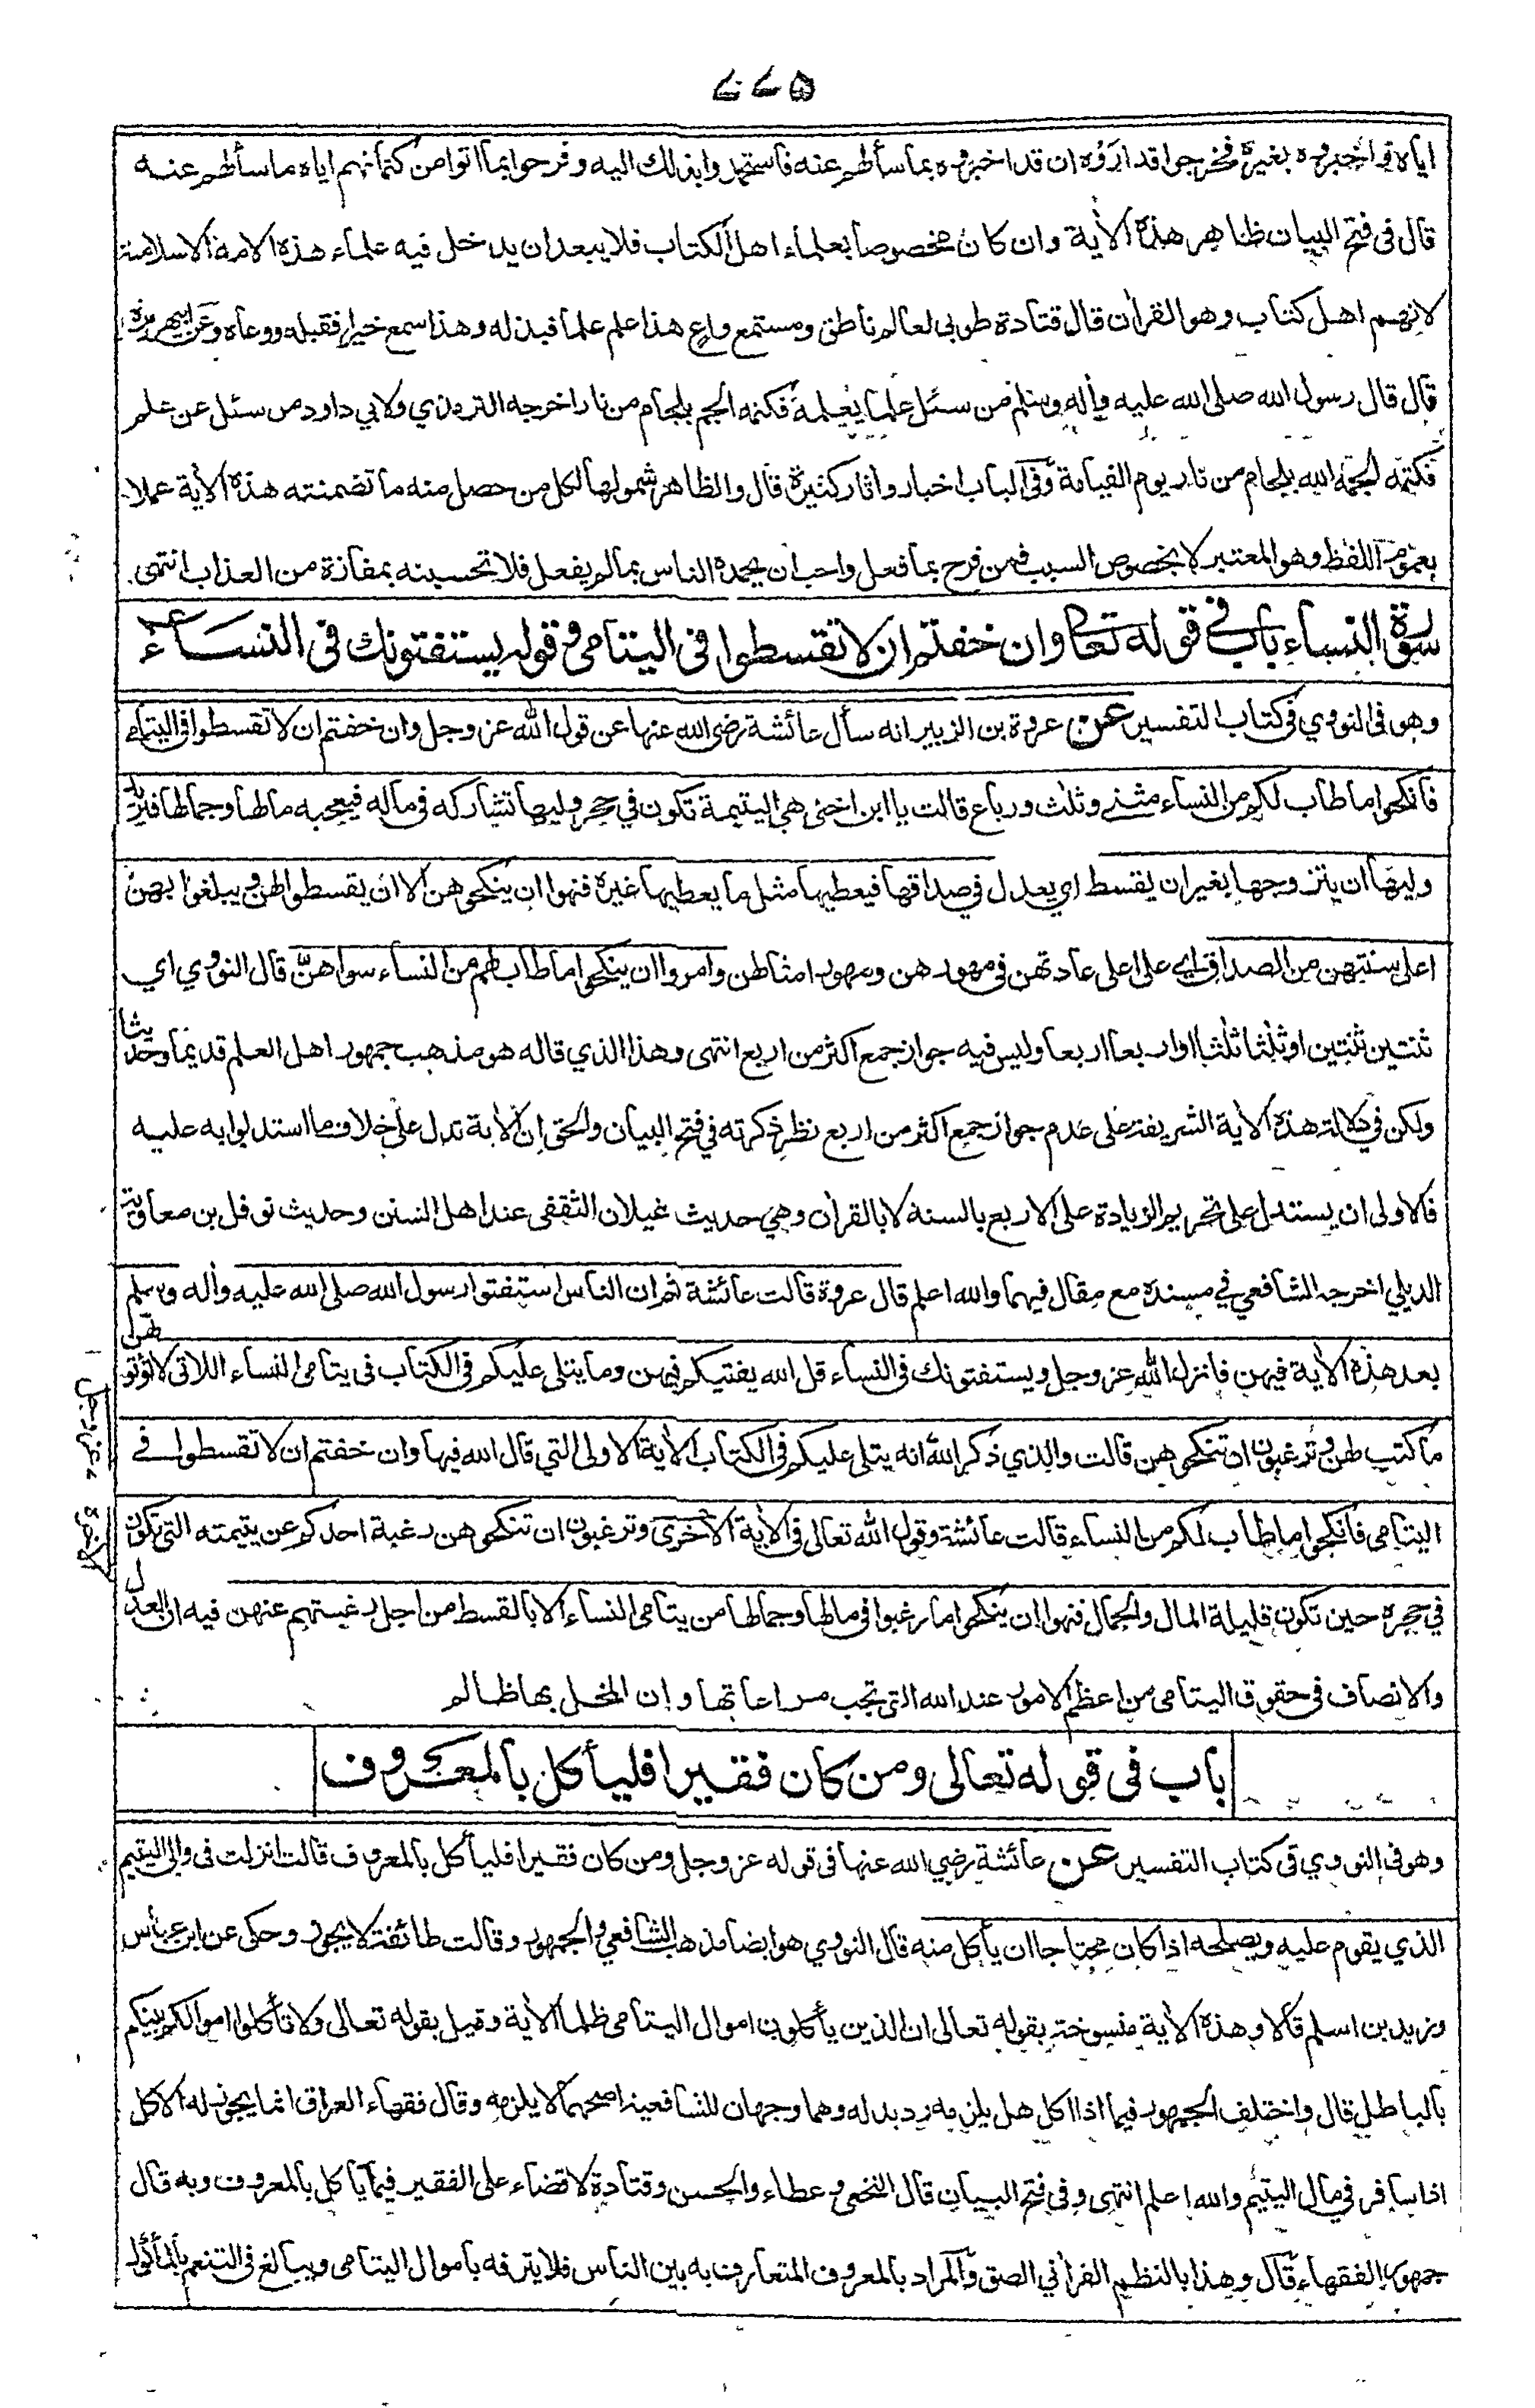 ٥٧٧
اياه فاخبروه بغيره فخرجوا قد اروه ان قد اخبروه بما سألهم عنه فاستحمدوا بذلك اليه وفرحوا بما اتوا من كتمانهم اياه ما سألهم عنه
قال في فتح البيان ظاهر هذه الأية وان كان مخصوصا بعلماء اهل الكتاب فلا يبعد ان يدخل فيه علماء هذه الامة الاسلامية
لانهم اهل كتاب وهو القرأن قال قتادة طوبى لعالم ناطق ومستمع واع هذا علم علما فبذله وهذا سمع خيرا فقبله ووعاه وعن ابيهريرة
قال قال رسول الله صلى الله عليه وأله وسلم من سئل علما يعلمه فكتمه الجم بلجام من نار اخرجه الترمذي ولابي داود من سئل عن علم
فكتمه الجمه الله بلجام من نار يوم القيامة وفي الباب اخبار وأثار كثيرة قال والظاهر شمولها لكل من حصل منه ما تضمنته هذه الأية عملا
بعموم اللفظ وهو المعتبر لا بخصوص السبب فمن فرح بما فعل واحب ان يحمده الناس بما لم يفعل فلا تحسبنه بمفازة من العذاب انتهى
سورة النساء باب في قوله تعالى وان خفتم ان لا تقسطوا في اليتامى وقوله يستفتونك في النساء
وهو في النووي في كتاب التفسير عن عروة بن الزبير انه سأل عائشة رضي الله عنها عن قول الله عز وجل وان خفتم ان لا تقسطوا في اليتامى
فانكحوا ما طاب لكم من النساء مثنى وثلث ورباع قالت يا ابن اختي هي اليتيمة تكون في حجر وليها تشاركه في ماله فيعجبه مالها وجمالها فيريد
وليها ان يتزوجها بغير ان يقسط اي يعدل في صداقها فيعطيها مثل ما يعطيها غيره فنهوا ان ينكحوهن الا ان يقسطوا لهن ويبلغوا بهن
اعلى سنتهن من الصداق اي على اعلى عادتهن في مهورهن ومهور امثالهن وامروا ان ينكحوا ما طاب لهم من النساء سواهن قال النووي اي
ثنتين ثنتين او ثلثا ثلثا او اربعا اربعا وليس فيه جواز جمع اكثر من اربع انتهى وهذا الذي قاله هو مذهب جمهور اهل العلم قديما وحديثا
ولكن في دلالة هذه الأية الشريفة على عدم جواز جمع اكثر من اربع نظر ذكرته في فتح البيان والحق ان الأية تدل على خلاف ما استدلوا به عليه
فالاولى ان يستدل على تحريم الزيادة على الاربع بالسنة لا بالقرأن وهي حديث غيلان الثقفي عند اهل السنن وحديث نوفل بن معاوية
الديلي اخرجه الشافعي في مسنده مع مقال فيهما والله اعلم قال عروة قالت عائشة ثم ان الناس استفتوا رسول الله صلى الله عليه وأله وسلم
بعد هذه الأية فيهن فانزل الله عز وجل ويستفتونك في النساء قل الله يفتيكم فيهن وما يتلى عليكم في الكتاب في يتامى النساء اللاتي لا تؤتونهن
ما كتب لهن وترغبون ان تنكحوهن قالت والذي ذكر الله انه يتلى عليكم في الكتاب الأية الاولى التي قال الله فيها وان خفتم ان لا تقسطوا في
اليتامى فانكحوا ما طاب لكم من النساء قالت عائشة وقول الله تعالى في الأية الاخرى وترغبون ان تنكحوهن رغبة احدكم عن يتيمته التي تكون
في حجره حين تكون قليلة المال والجمال فنهوا ان ينكحوا ما رغبوا في مالها وجمالها من يتامى النساء الا بالقسط من اجل رغبتهم عنهن فيه ان العدل
والانصاف في حقوق اليتامى من اعظم الامور عند الله التي تجب مراعاتها وان المخل بها ظالم
باب في قوله تعالى ومن كان فقيرا فليأكل بالمعروف
وهو في النووي في كتاب التفسير عن عائشة رضي الله عنها في قوله عز وجل ومن كان فقيرا فليأكل بالمعروف قالت انزلت في والي اليتيم
الذي يقوم عليه ويصلحه اذا كان محتاجا ان يأكل منه قال النووي هو ايضا مذهب الشافعي والجمهور وقالت طائفة لا يجوز وحكى عن ابن عباس
وزيد بن اسلم قالا وهذه الأية منسوخة بقوله تعالى ان الذين يأكلون اموال اليتامى ظلما الأية وقيل بقوله تعالى ولا تأكلوا اموالكم بينكم
بالباطل قال واختلف الجمهور فيما اذا اكل هل يلزمه رد بدله وهما وجهان للشافعية اصحهما لا يلزمه وقال فقهاء العراق انما يجوز له الاكل
اذا سافر في مال اليتيم والله اعلم انتهى وفي فتح البيان قال النخعي وعطاء والحسن وقتادة لا قضاء على الفقير فيما يأكل بالمعروف وبه قال
جمهور الفقهاء قال وهذا بالنظم القرأني الصق والمراد بالمعروف المتعارف به بين الناس فلا يترفه باموال اليتامى ويبالغ في التنعم بالمأكول